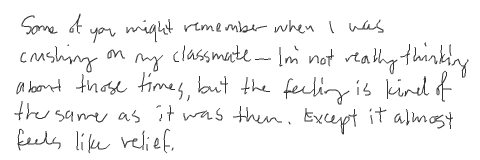 Some of you might remember when I was
crushing on my classmate – I'm not really thinking
about those times, but the feeling is kind of
the same as it was then. Except it almost
feels like relief.